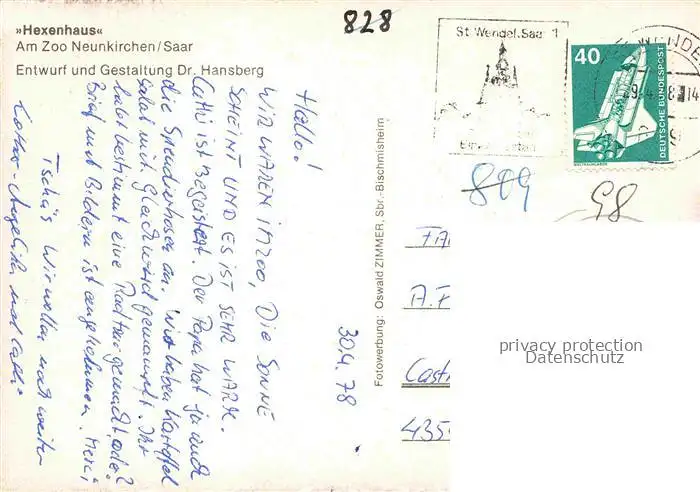 »Hexenhaus«
Am Zoo Neunkirchen/Saar
Entwurf und Gestaltung Dr. Hansberg
828
St. Wendel, Saar 1
40
DEUTSCHE BUNDESPOST
809
98
30.4.78
Hallo!
WIR WAREN IM ZOO, DIE SONNE
SCHEINT UND ES IST SEHR WARM.
Cathi ist Begeistert. Der Papa hat ja auch
die Spendierhosen an. Wir haben Kartoffel
Salat mit gemampft. Ihr
habt bestimmt eine Radtour gemacht, oder?
Brief mit Bildern ist angekommen. Merci
Tschüs Wir wollen noch weiter
Fotowerbung: Oswald ZIMMER, Sbr.-Bischmisheim
FA
A.F
Cast
435
privacy protection
Datenschutz